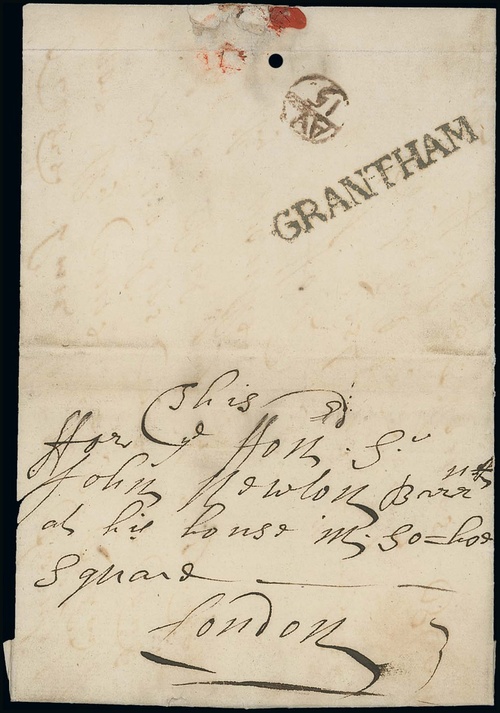 AV
15
GRANTHAM
This
ffor ye Hon. Sr
John Newton Barr:ntt
at his house in So=hoe
Square
London